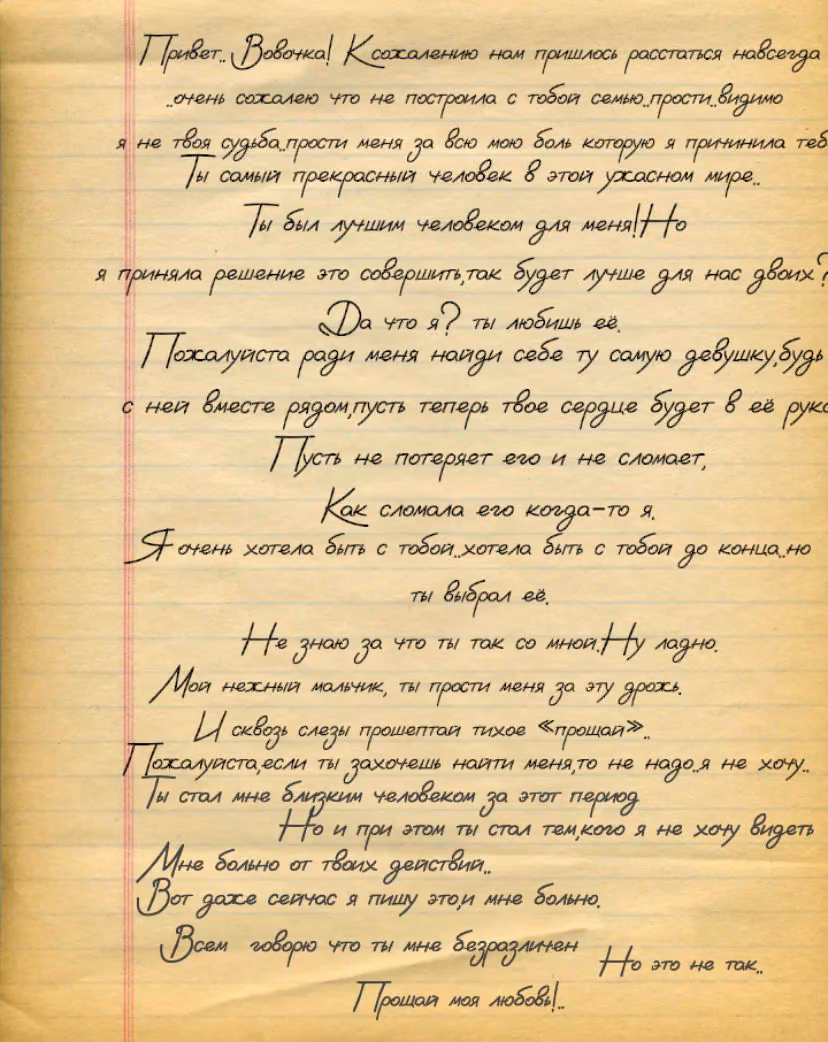 Привет.. Вовочка! К сожалению нам пришлось расстаться навсегда
..очень сожалею что не построила с тобой семью..прости..видимо
я не твоя судьба..прости меня за всю мою боль которую я причинила теб
Ты самый прекрасный человек в этой ужасном мире..
Ты был лучшим человеком для меня!Но
я приняла решение это совершить,так будет лучше для нас двоих?
Да что я? ты любишь её.
Пожалуйста ради меня найди себе ту самую девушку,будь
с ней вместе рядом,пусть теперь твое сердце будет в её рука
Пусть не потеряет его и не сломает,
Как сломала его когда-то я.
Я очень хотела быть с тобой..хотела быть с тобой до конца..но
ты выбрал её.
Не знаю за что ты так со мной.Ну ладно.
Мой нежный мальчик, ты прости меня за эту дрожь.
И сквозь слезы прошептай тихое «прощай»..
Пожалуйста,если ты захочешь найти меня,то не надо..я не хочу..
Ты стал мне близким человеком за этот период
Но и при этом ты стал тем,кого я не хочу видеть
Мне больно от твоих действий..
Вот даже сейчас я пишу это,и мне больно.
Всем говорю что ты мне безразличен
Но это не так..
Прощай моя любовь!..